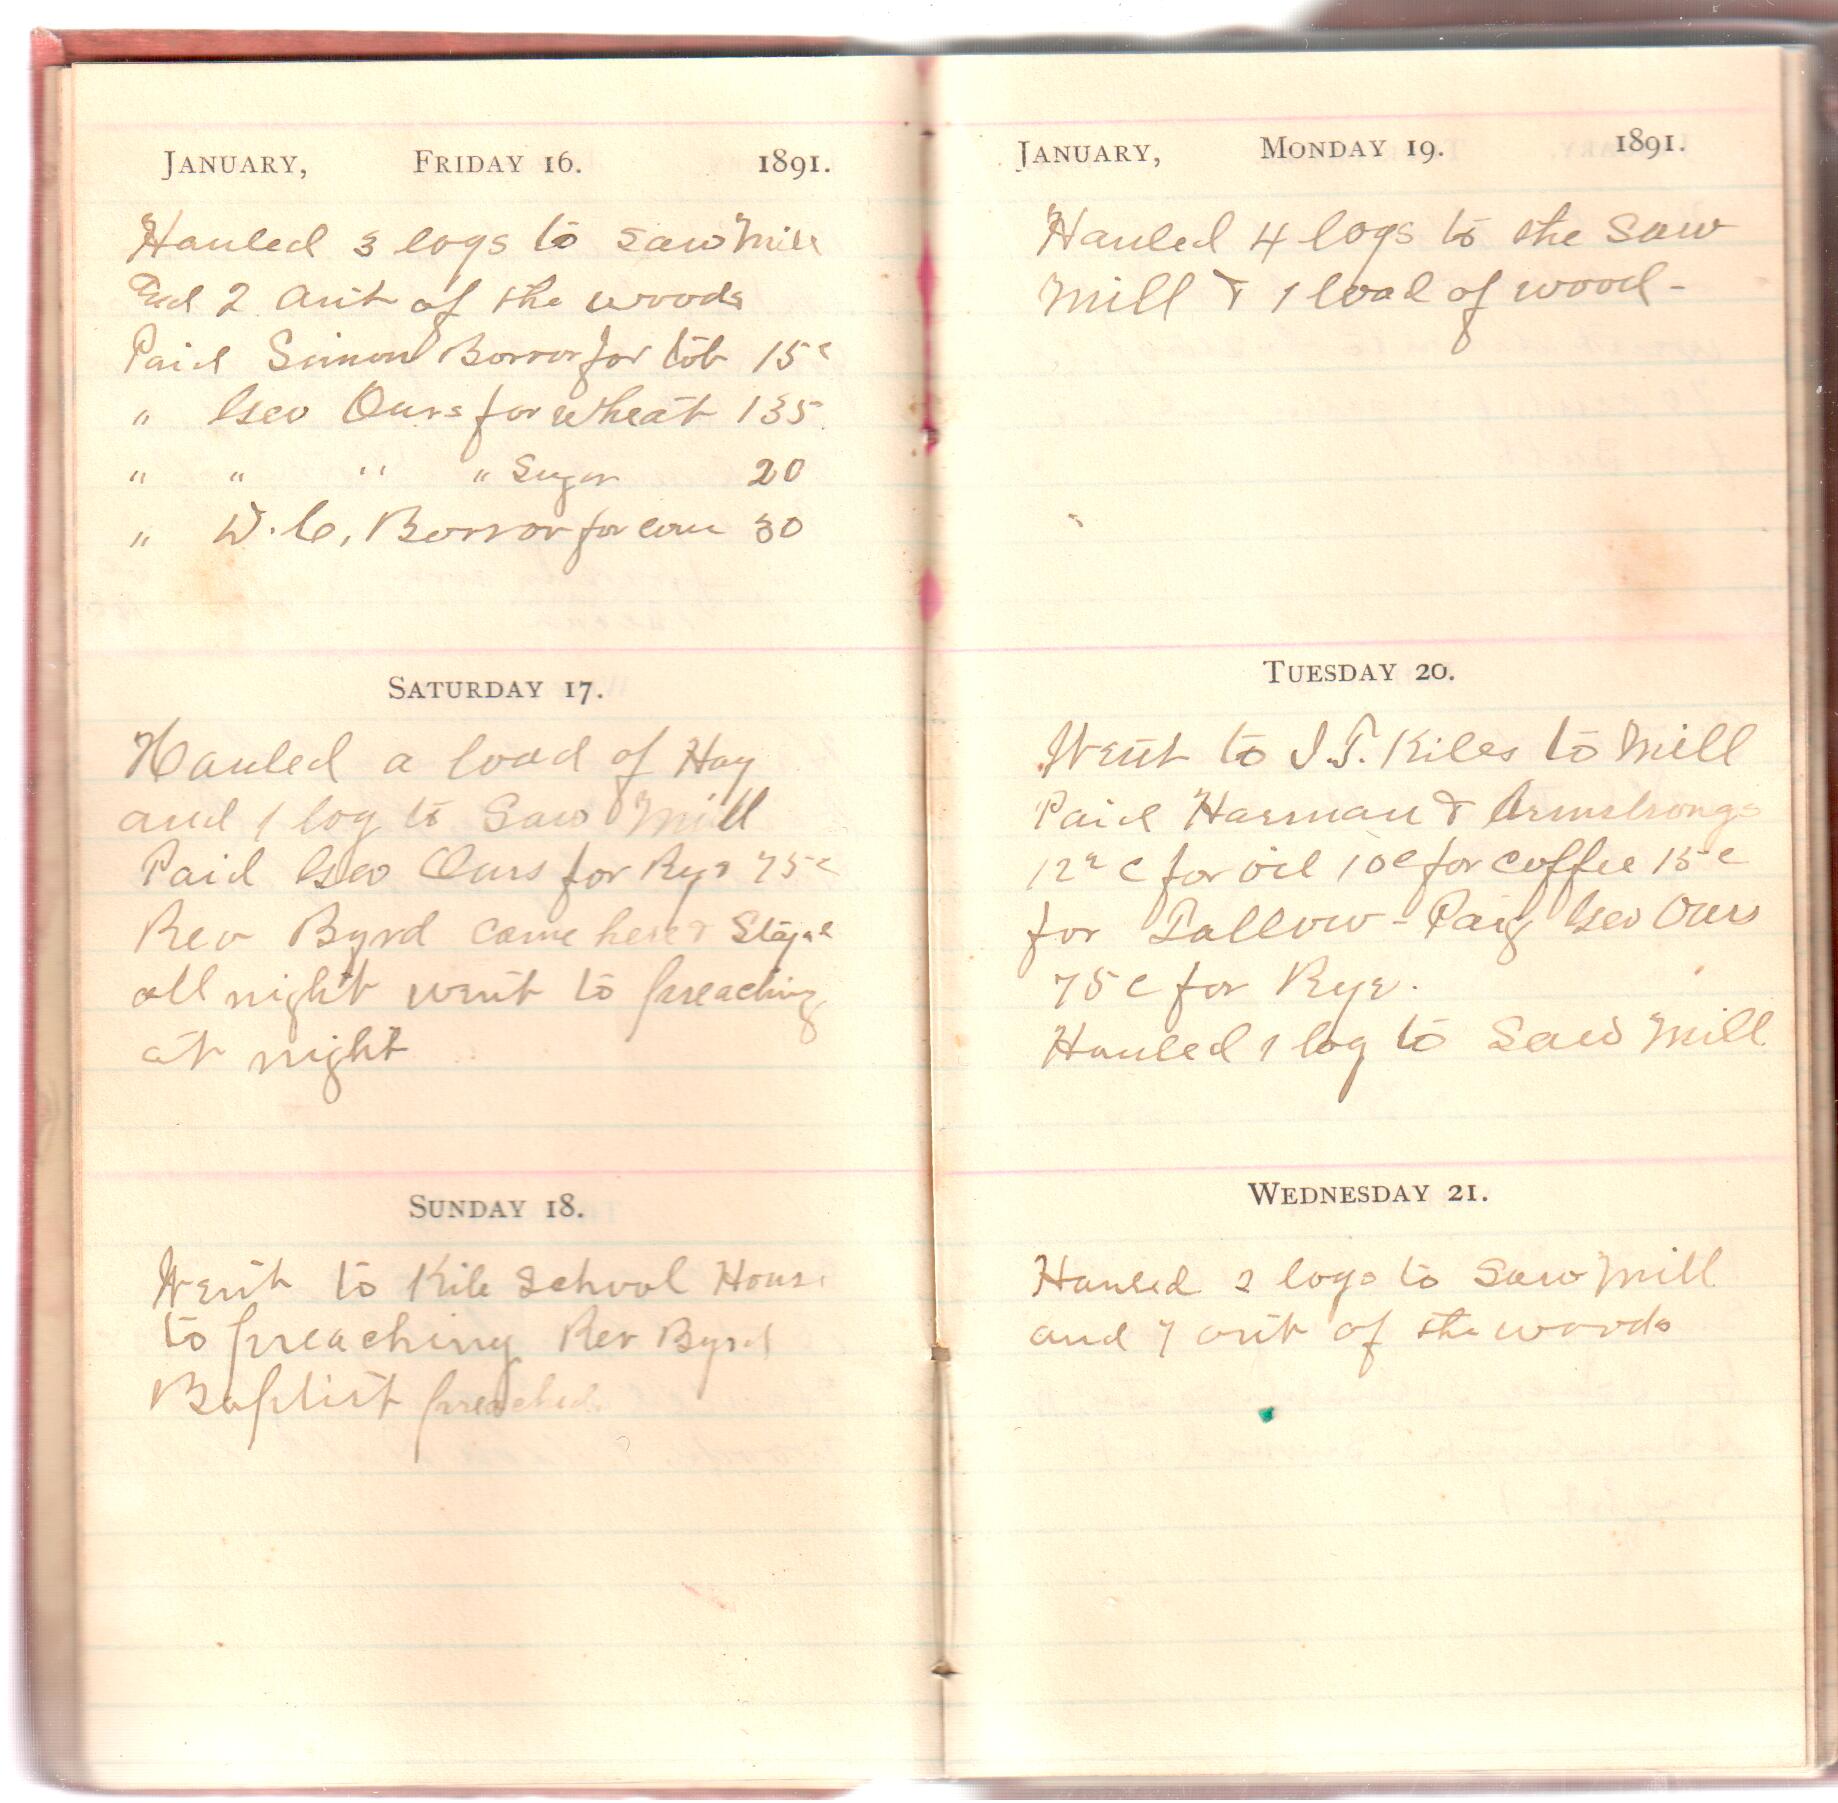 JANUARY, FRIDAY 16. 1891.
Hauled 3 logs to saw Mill
and 2 out of the woods
Paid Simon Borror for tob 15c
" Geo Ours for wheat 135
" " " " Sugar 20
" D. C, Borror for corn 30
SATURDAY 17.
Hauled a load of Hay
and 1 log to Saw Mill
Paid Geo Ours for Rye 75c
Rev Byrd came here & Stayed
all night went to preaching
at night
SUNDAY 18.
Went to Kile School House
to preaching Rev Byrd
Baptist preached
JANUARY, MONDAY 19. 1891.
Hauled 4 logs to the Saw
Mill & 1 load of wood-
TUESDAY 20.
Went to I.T. Kiles to Mill
Paid Harman & Armstrongs
c for oil 10c for coffee 15c
for Tallow - Paid Geo Ours
75c for Rye.
Hauled 1 log to Saw Mill
WEDNESDAY 21.
Hauled 2 logs to Saw Mill
and 7 out of the woods